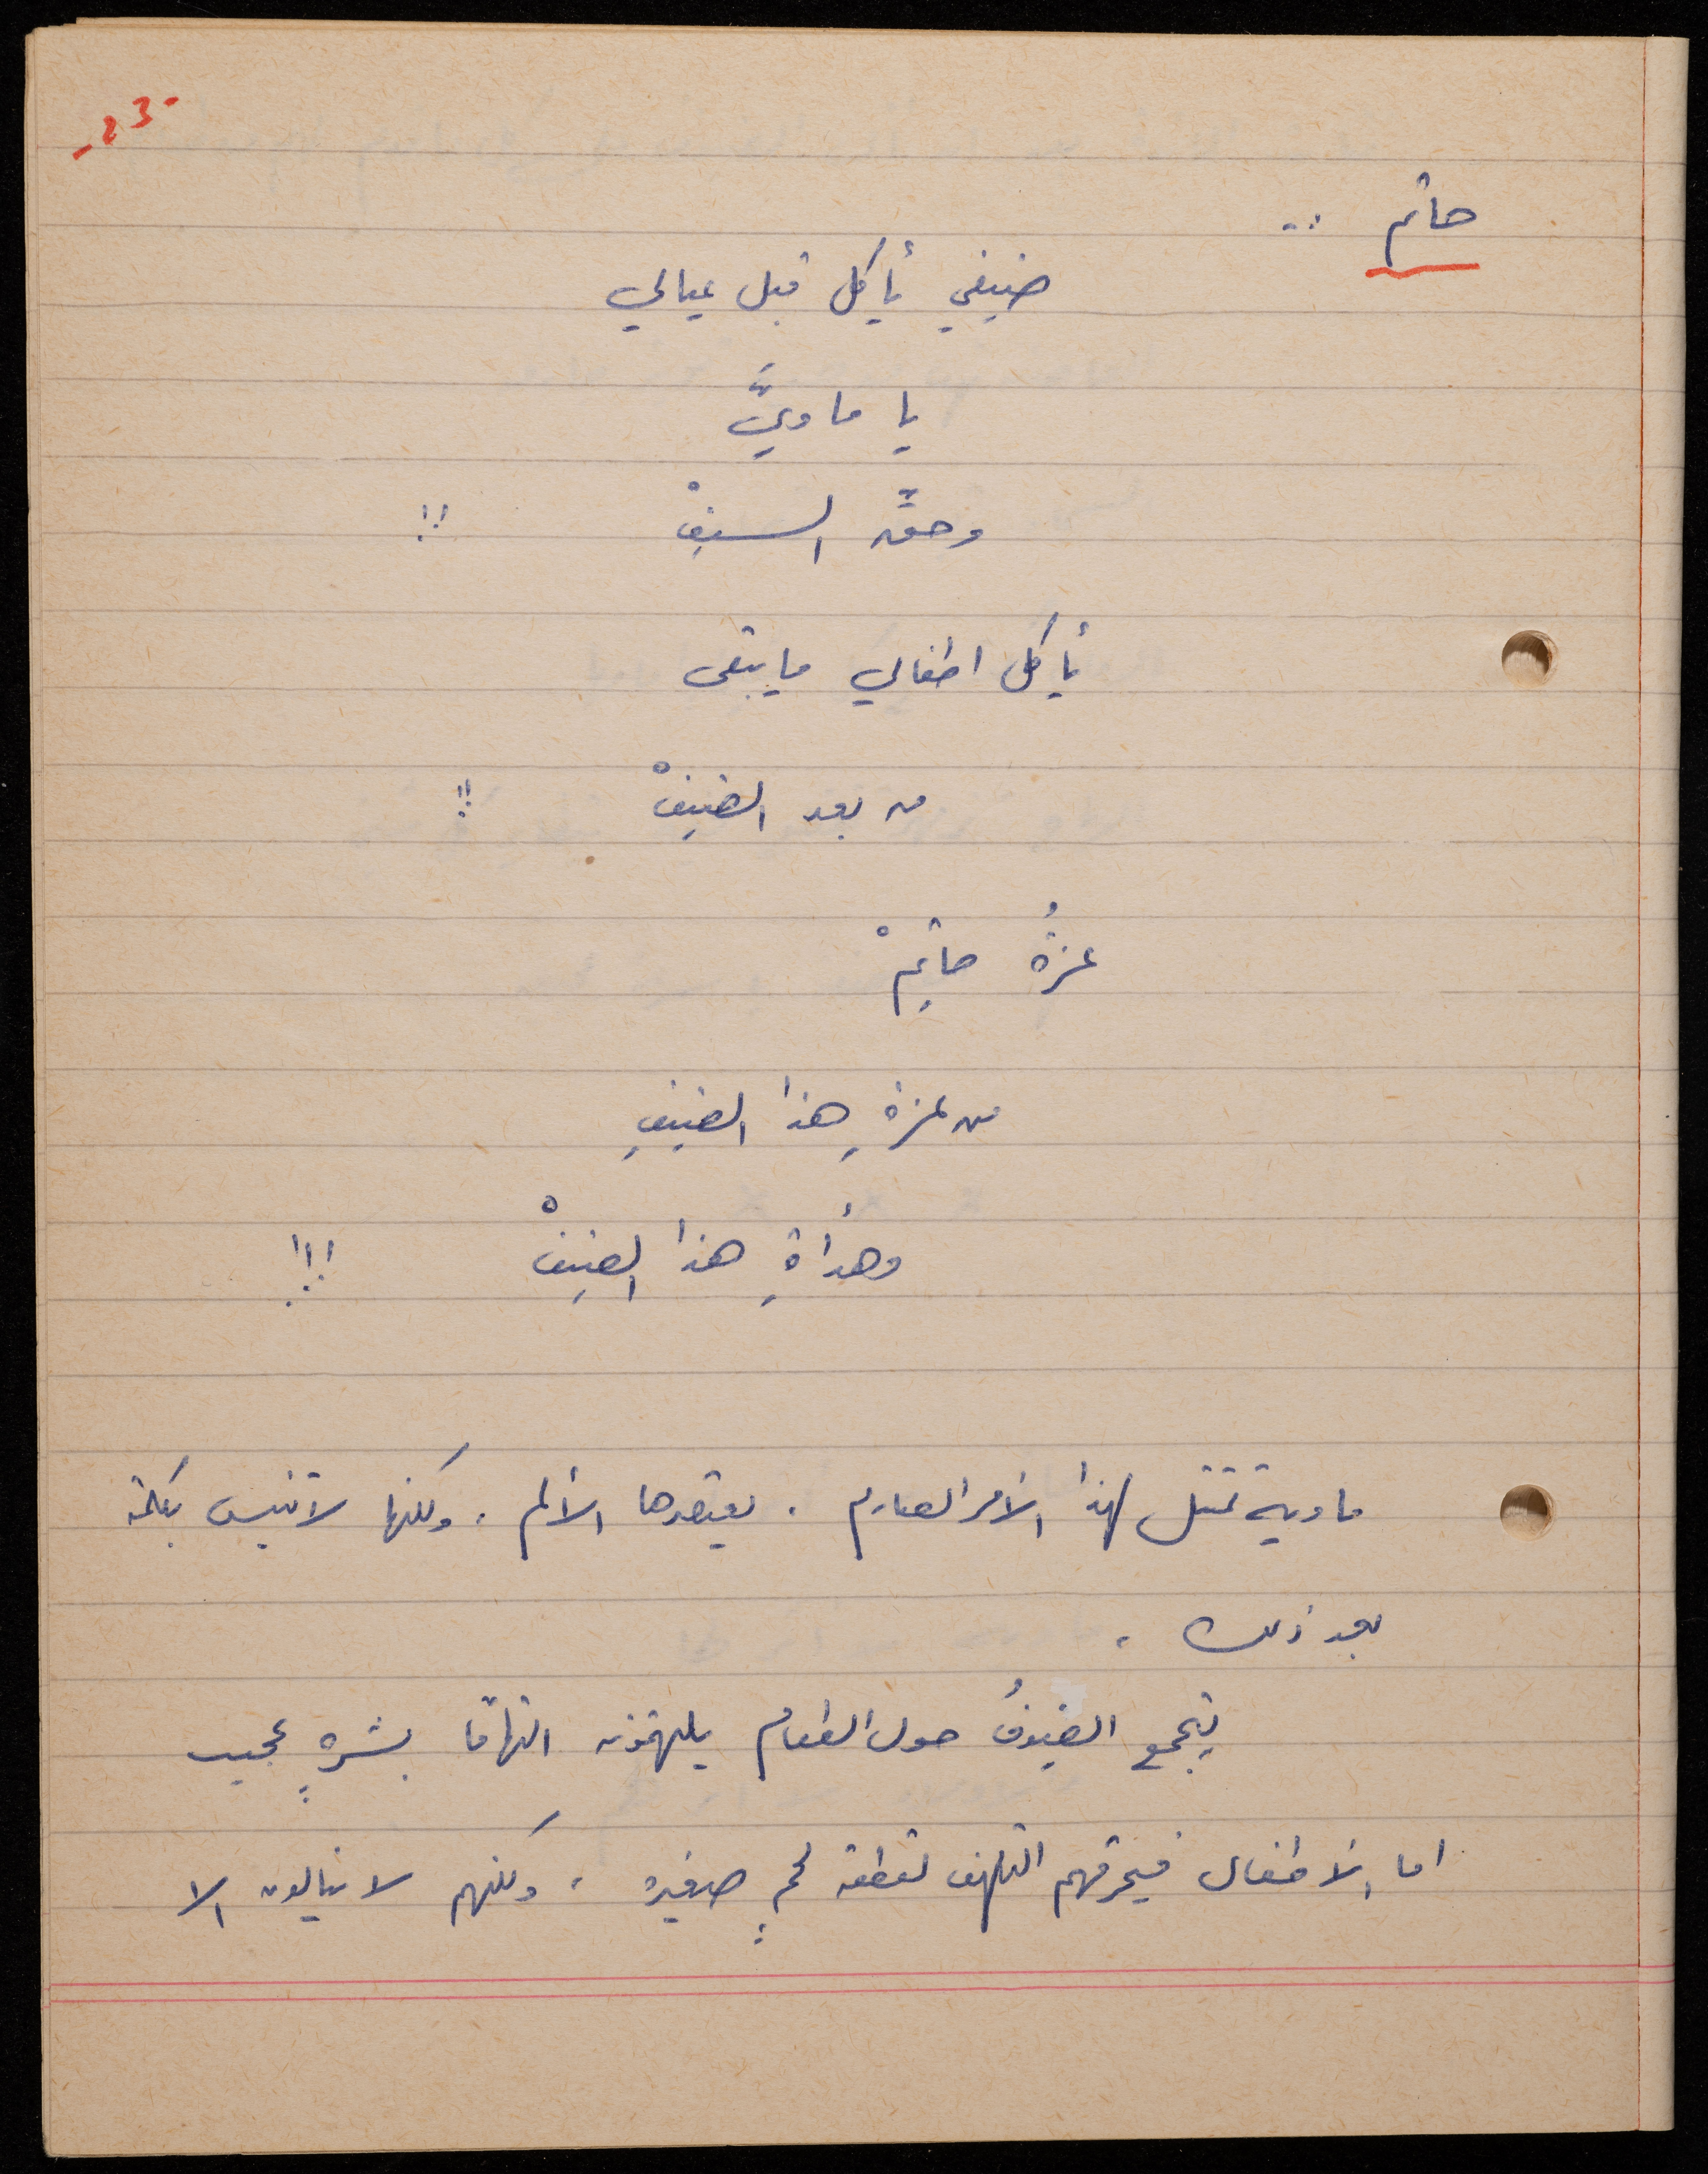 -23-
حاتم :.
ضيفي يأكل قبل عيالي
يا ماويَّ
وحقَّ السيفْ !!
يأكل اطفالي ما يبقى
من بعد الضيفْ !!
عزةُ حاتِمْ
من عزةِ هذا الضيفِ
وهدأةِ هذا الضيفْ !!!
ماوية تمتثل لهذا الأمر الصارم . يعتصرها الألم . ولكنها لا تنبس بكلمة
بعد ذلك .
يتجمع الضيوفُ حول الطعام يلتهمونه التهامًا بشرهٍ عجيب
اما الأطفال فيحرقهم التلهف لقطعة لحمٍ صغيرة ، ولكنهم لا ينالون الا